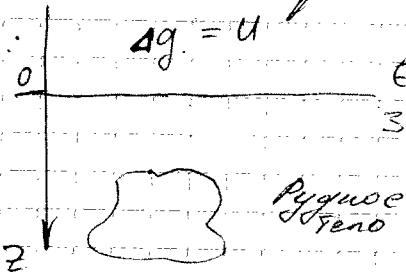 Δg = U
0
З
Рудное
тело
Z